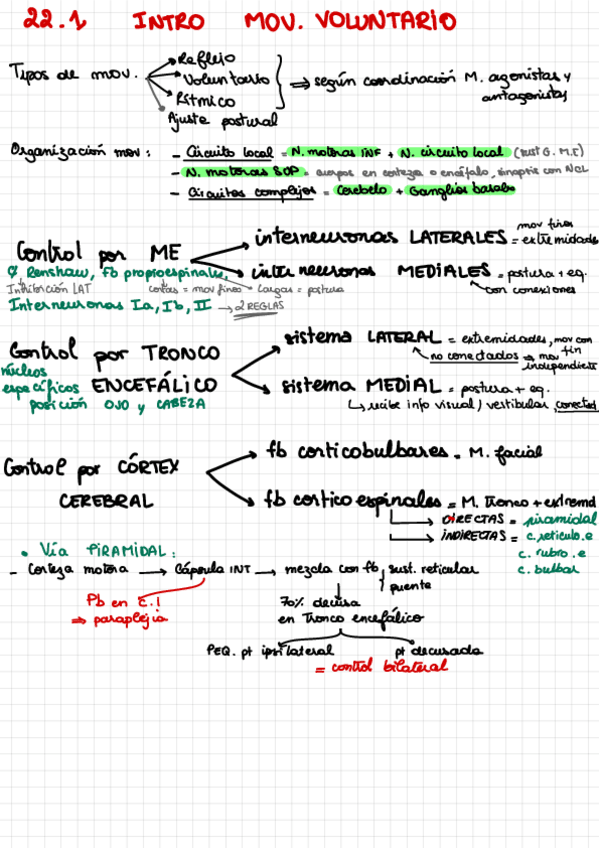 22.1 INTRO MOV. VOLUNTARIO
Reflejo
Tipos de mov. Voluntario ⇒ según coordinación M. agonistas y
Rítmico antagonistas
Ajuste postural
Organización mov: - Circuito local = N. motoras INF + N. circuito local (sust G. M.E)
- N. motoras SUP = cuerpos en corteza o encéfalo, sinapsis con NCL
- Circuitos complejos = Cerebelo + Ganglios basales
mov finos
Control por ME interneuronas LATERALES = extremidades
Renshaw, fb propioespinales, interneuronas MEDIALES = postura + eq.
Inhibición LAT cortas = mov finos largas = postura con conexiones
Interneuronas Ia, Ib, II → 2 REGLAS
sistema LATERAL = extremidades, mov con
fin
Control por TRONCO no conectados ⇒ mov
independiente
núcleos
específicos ENCEFÁLICO sistema MEDIAL = postura + eq.
posición OJO y CABEZA ↳ recibe info visual / vestibular, conectad
fb corticobulbares = M. facial
Control por CÓRTEX
CEREBRAL fb corticoespinales = M. Tronco + extremd
→ DIRECTAS = piramidal
→ INDIRECTAS = c. reticulo.e
• Vía PIRAMIDAL: c. rubro.e
- Corteza motora → Cápsula INT → mezcla con fb sust. reticular c. bulbar
puente
Pb en E.! 70% decusa
⇒ paraplejia en Tronco encefálico
PEQ. pt ipsilateral pt decusada
= control bilateral